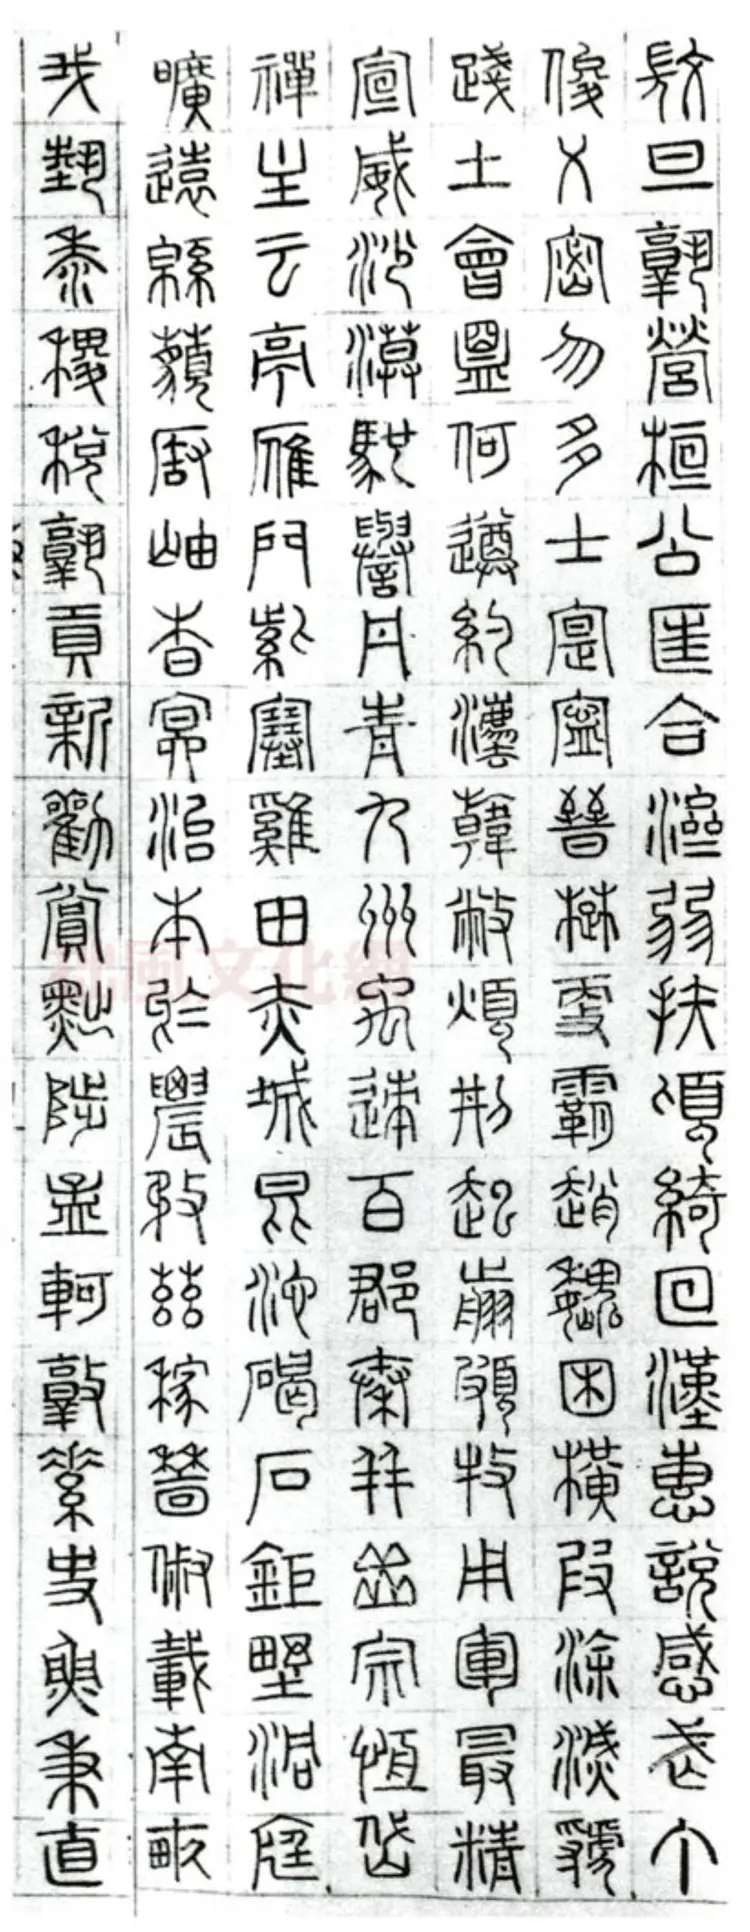 微旦孰營桓公匡合濟弱扶傾綺回漢惠說感武丁
俊乂密勿多士寔寧晉楚更霸趙魏困橫假途滅虢
踐土會盟何遵約法韓弊煩刑起翦頗牧用軍最精
宣威沙漠馳譽丹青九州禹跡百郡秦并岳宗恆岱
禪主云亭雁門紫塞雞田赤城昆池碣石鉅野洞庭
曠遠綿邈巖岫杳冥治本於農務茲稼穡俶載南畝
我藝黍稷稅孰貢新勸賞黜陟孟軻敦素史魚秉直
風文化網